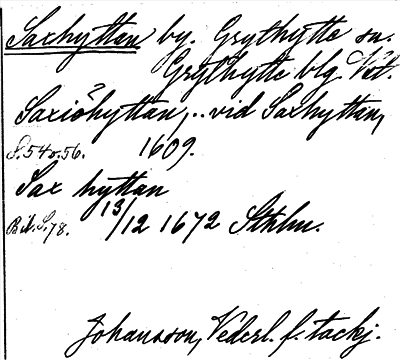 Saxhyttan by. Grythytte sn.
Grythytte blg. Vstl.
Saxiöhyttan, .. vid Saxhyttan,
S. 54 o. 56. 1609.
Sax hyttan
Bil. S. 78. 13/12 1672 Sthlm.
Johansson, Vederl. f. tackj.